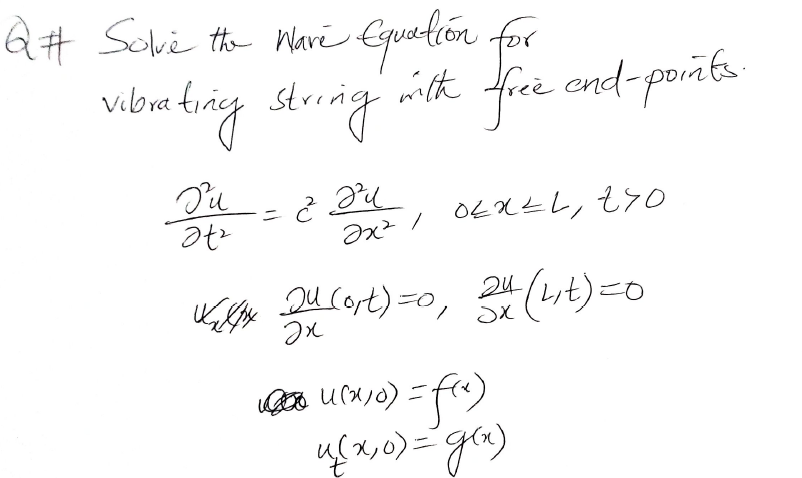 Q# Solve the Wave Equation for
vibrating string with free end-points.
∂²u/∂t² = c² ∂²u/∂x², 0≤x≤L, t>0
∂u/∂x (0,t)=0, ∂u/∂x (L,t)=0
u(x,0) = f(x)
u_t(x,0) = g(x)